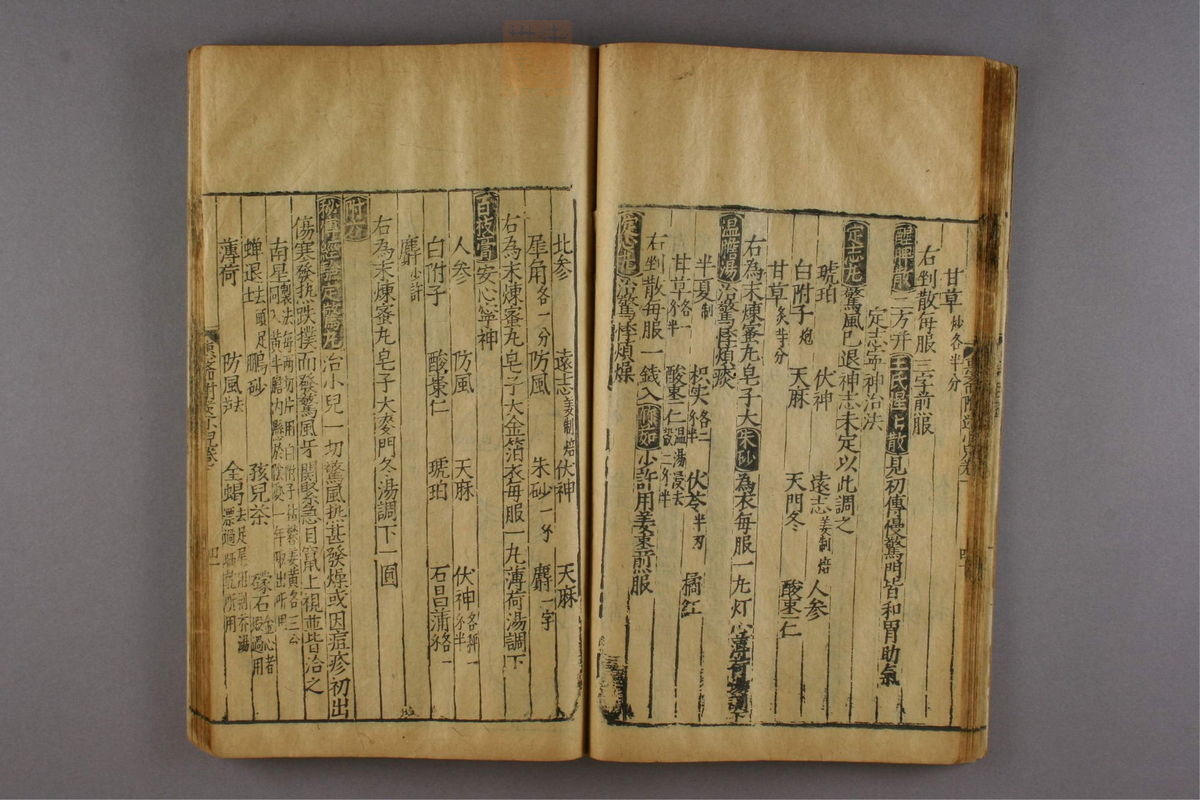 甘草炒各半分
右剉散每服三字煎服
醒脾散二方并王氏惺惺散見初傳慢驚門皆和胃助氣
定志寧神治法
定志丸驚風已退神志未定以此調之
琥珀 伏神 遠志姜制焙 人參
白附子炮 天麻 天門冬 酸棗仁
甘草炙等分
右為末煉蜜丸皂子大朱砂為衣每服一丸灯心薄荷湯調下
温膽湯治驚悸煩痰
半夏制 枳实各二 伏苓半 橘紅
甘草各一 酸棗仁温湯浸去
右剉散每服一錢入竹茹少許用姜棗煎服
定心丸治驚悸煩燥
北參 遠志姜制焙 伏神 天麻
犀角各一分 防風 朱砂一 麝一字
右為末煉蜜丸皂子大金箔衣每服一丸薄荷湯調下
百枝膏安心寧神
人參 防風 天麻 伏神各
白附子 酸棗仁 琥珀 石昌蒲各一
麝少許
右為末煉蜜丸皂子大麥門冬湯調下一圓
附
秘傳 定驚丸治小兒一切驚風热甚發燥或因痘疹初出
傷寒發热跌撲而發驚風牙關緊急目竄上視並皆治之
南星製法每兩切片用白附子
蝉退去頭足 鵬砂 孩兒茶 礞石
薄荷 防風 全蝎去足尾